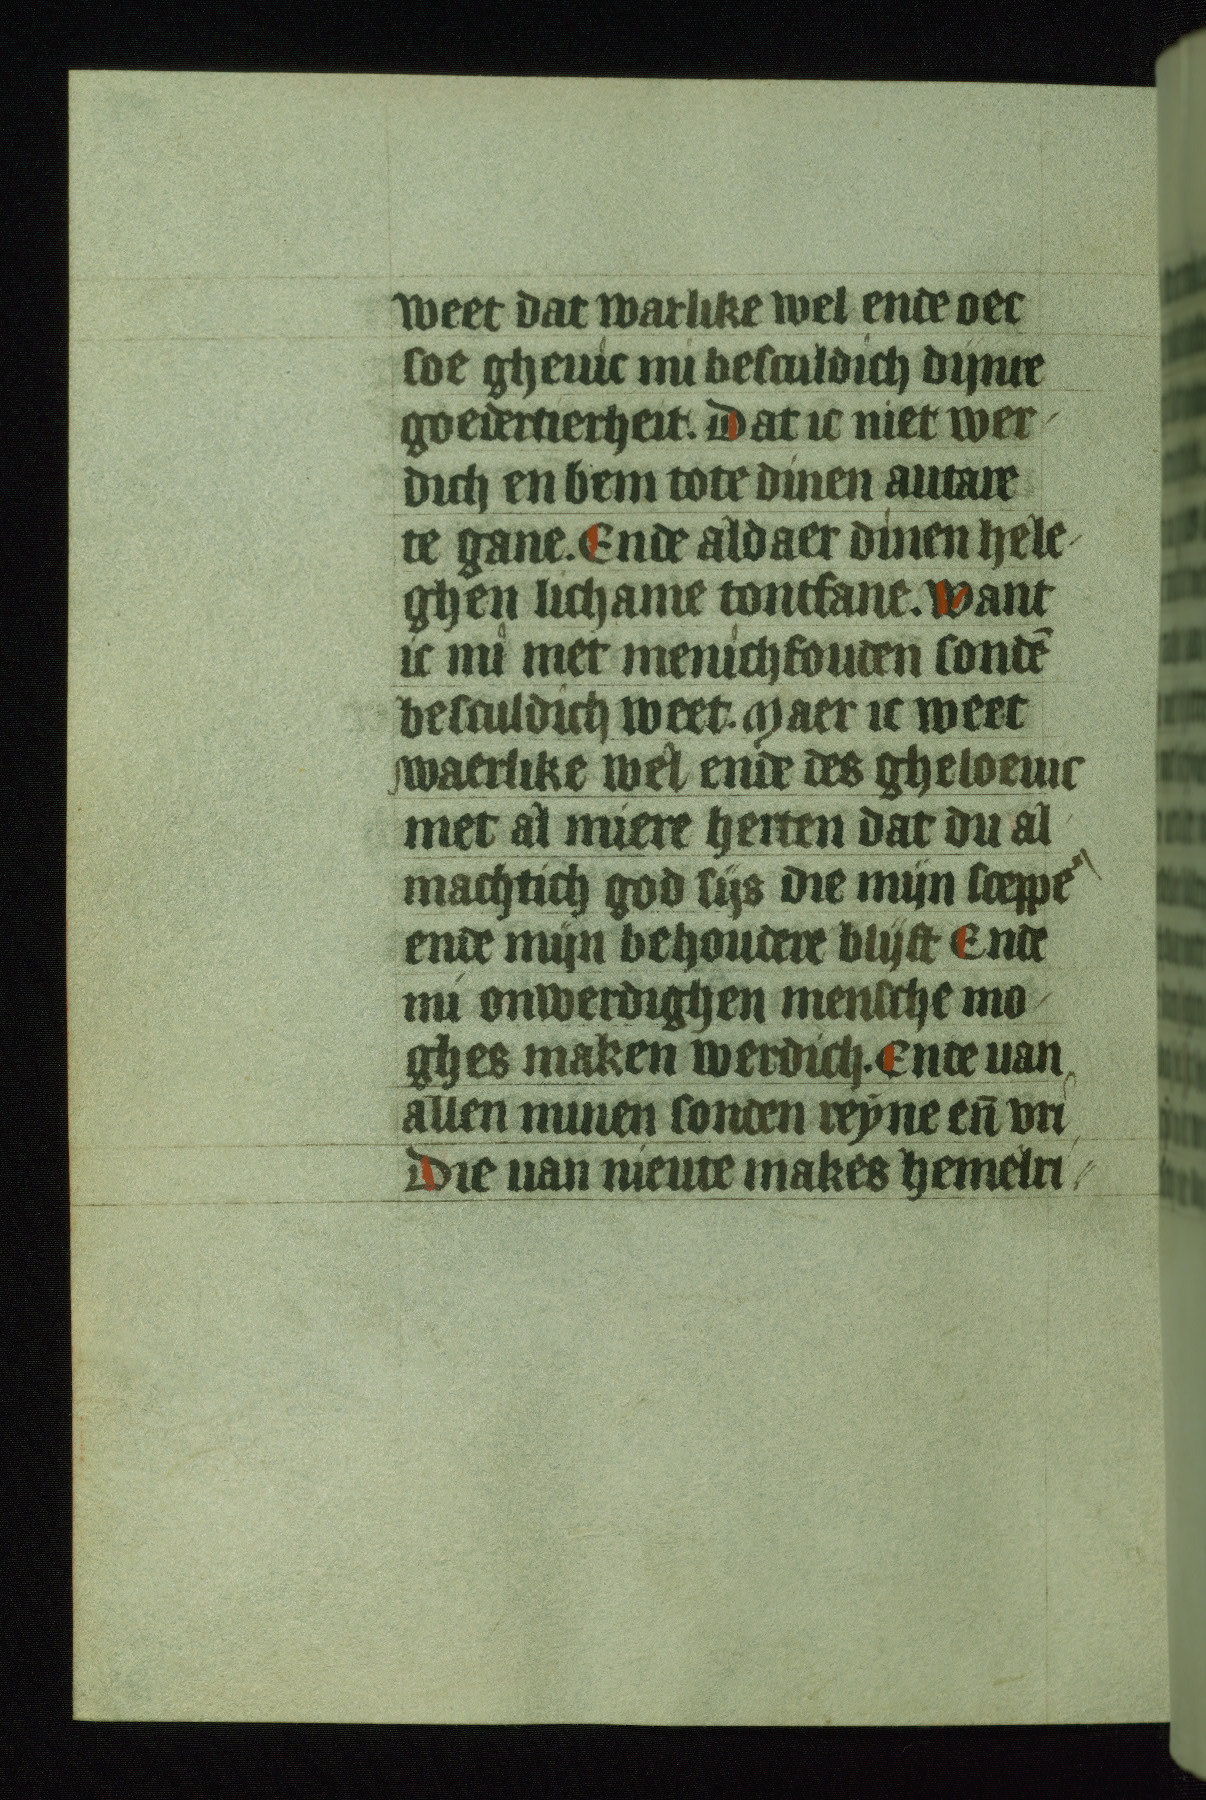 weet dat warlike wel ende oec
soe gheuic mi besculdich dijnre
goedertierheit. Dat ic niet wer-
dich en bem tote dinen autare
te gane. Ende aldaer dinen hele-
ghen lichame tontfane. Want
ic mi met menichfouden sondē
besculdich weet. Maer ic weet
waerlike wel ende des gheloeuic
met al miere herten dat du al
machtich god sijs die mijn sceppe͛
ende mijn behoudere blijft Ende
mi onwerdighen mensche mo-
ghes maken werdich. Ende uan
allen minen sonden reyne en̄ vri
Die uan nieute makes hemelri-